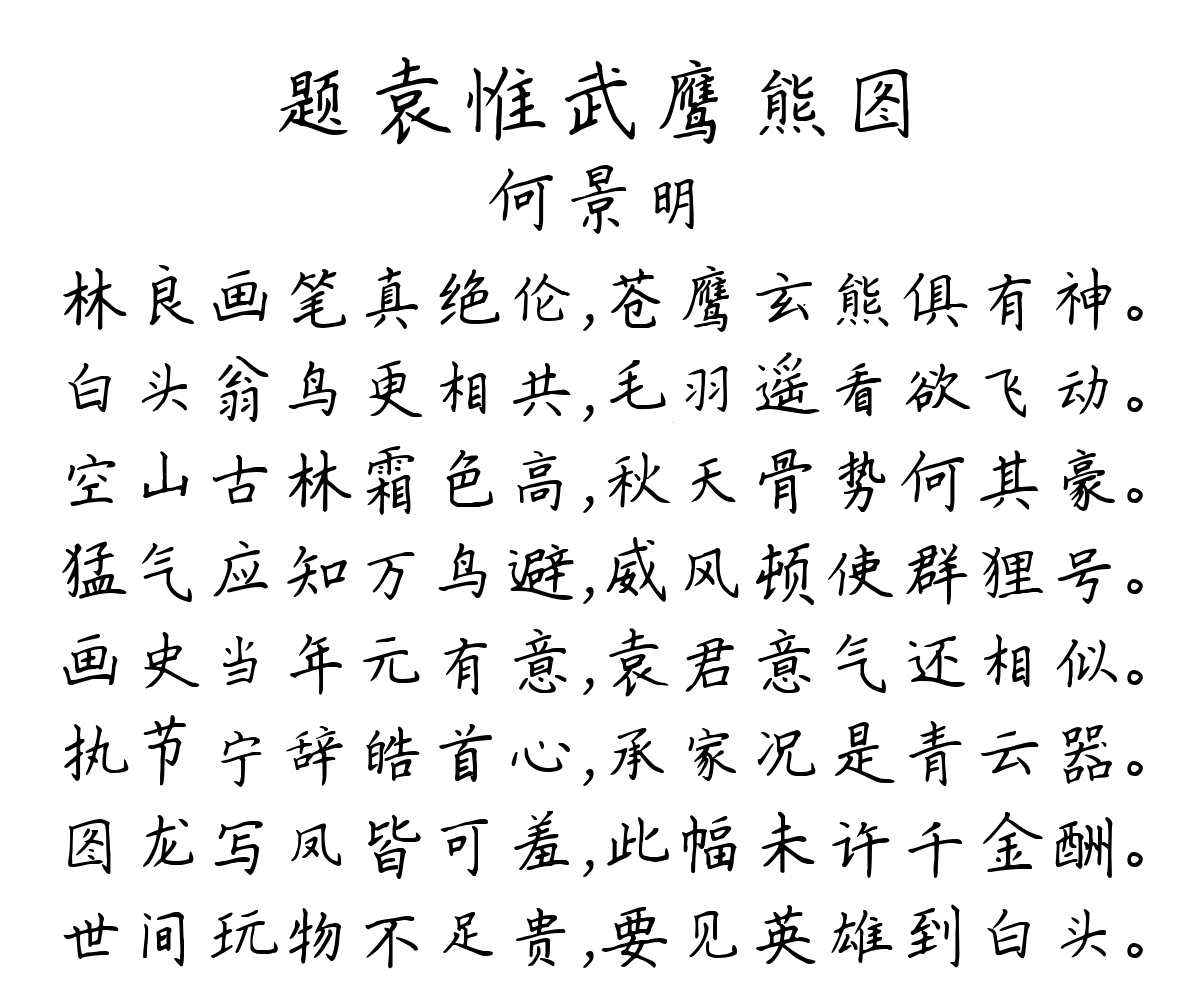 题袁惟武鹰熊图
何景明
林良画笔真绝伦,苍鹰玄熊俱有神。
白头翁鸟更相共,毛羽遥看欲飞动。
空山古林霜色高,秋天骨势何其豪。
猛气应知万鸟避,威风顿使群狸号。
画史当年元有意,袁君意气还相似。
执节宁辞皓首心,承家况是青云器。
图龙写凤皆可羞,此幅未许千金酬。
世间玩物不足贵,要见英雄到白头。